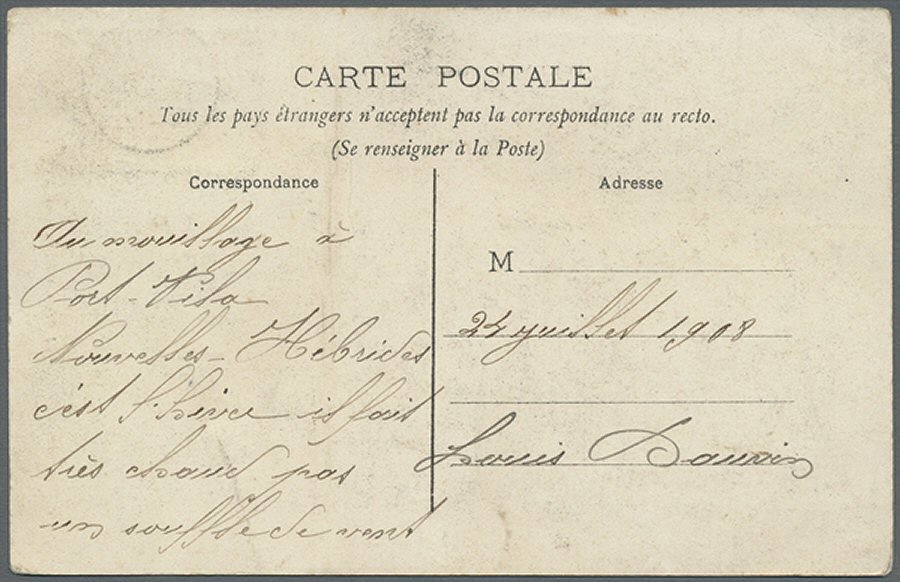 CARTE POSTALE
Tous les pays étrangers n'acceptent pas la correspondance au recto.
(Se renseigner à la Poste)
Correspondance
Au mouillage à
Port-Vila
Nouvelles-Hébrides
c'est l'hiver il fait
très chaud pas
un souffle de vent
Adresse
M
24 juillet 1908
Louis